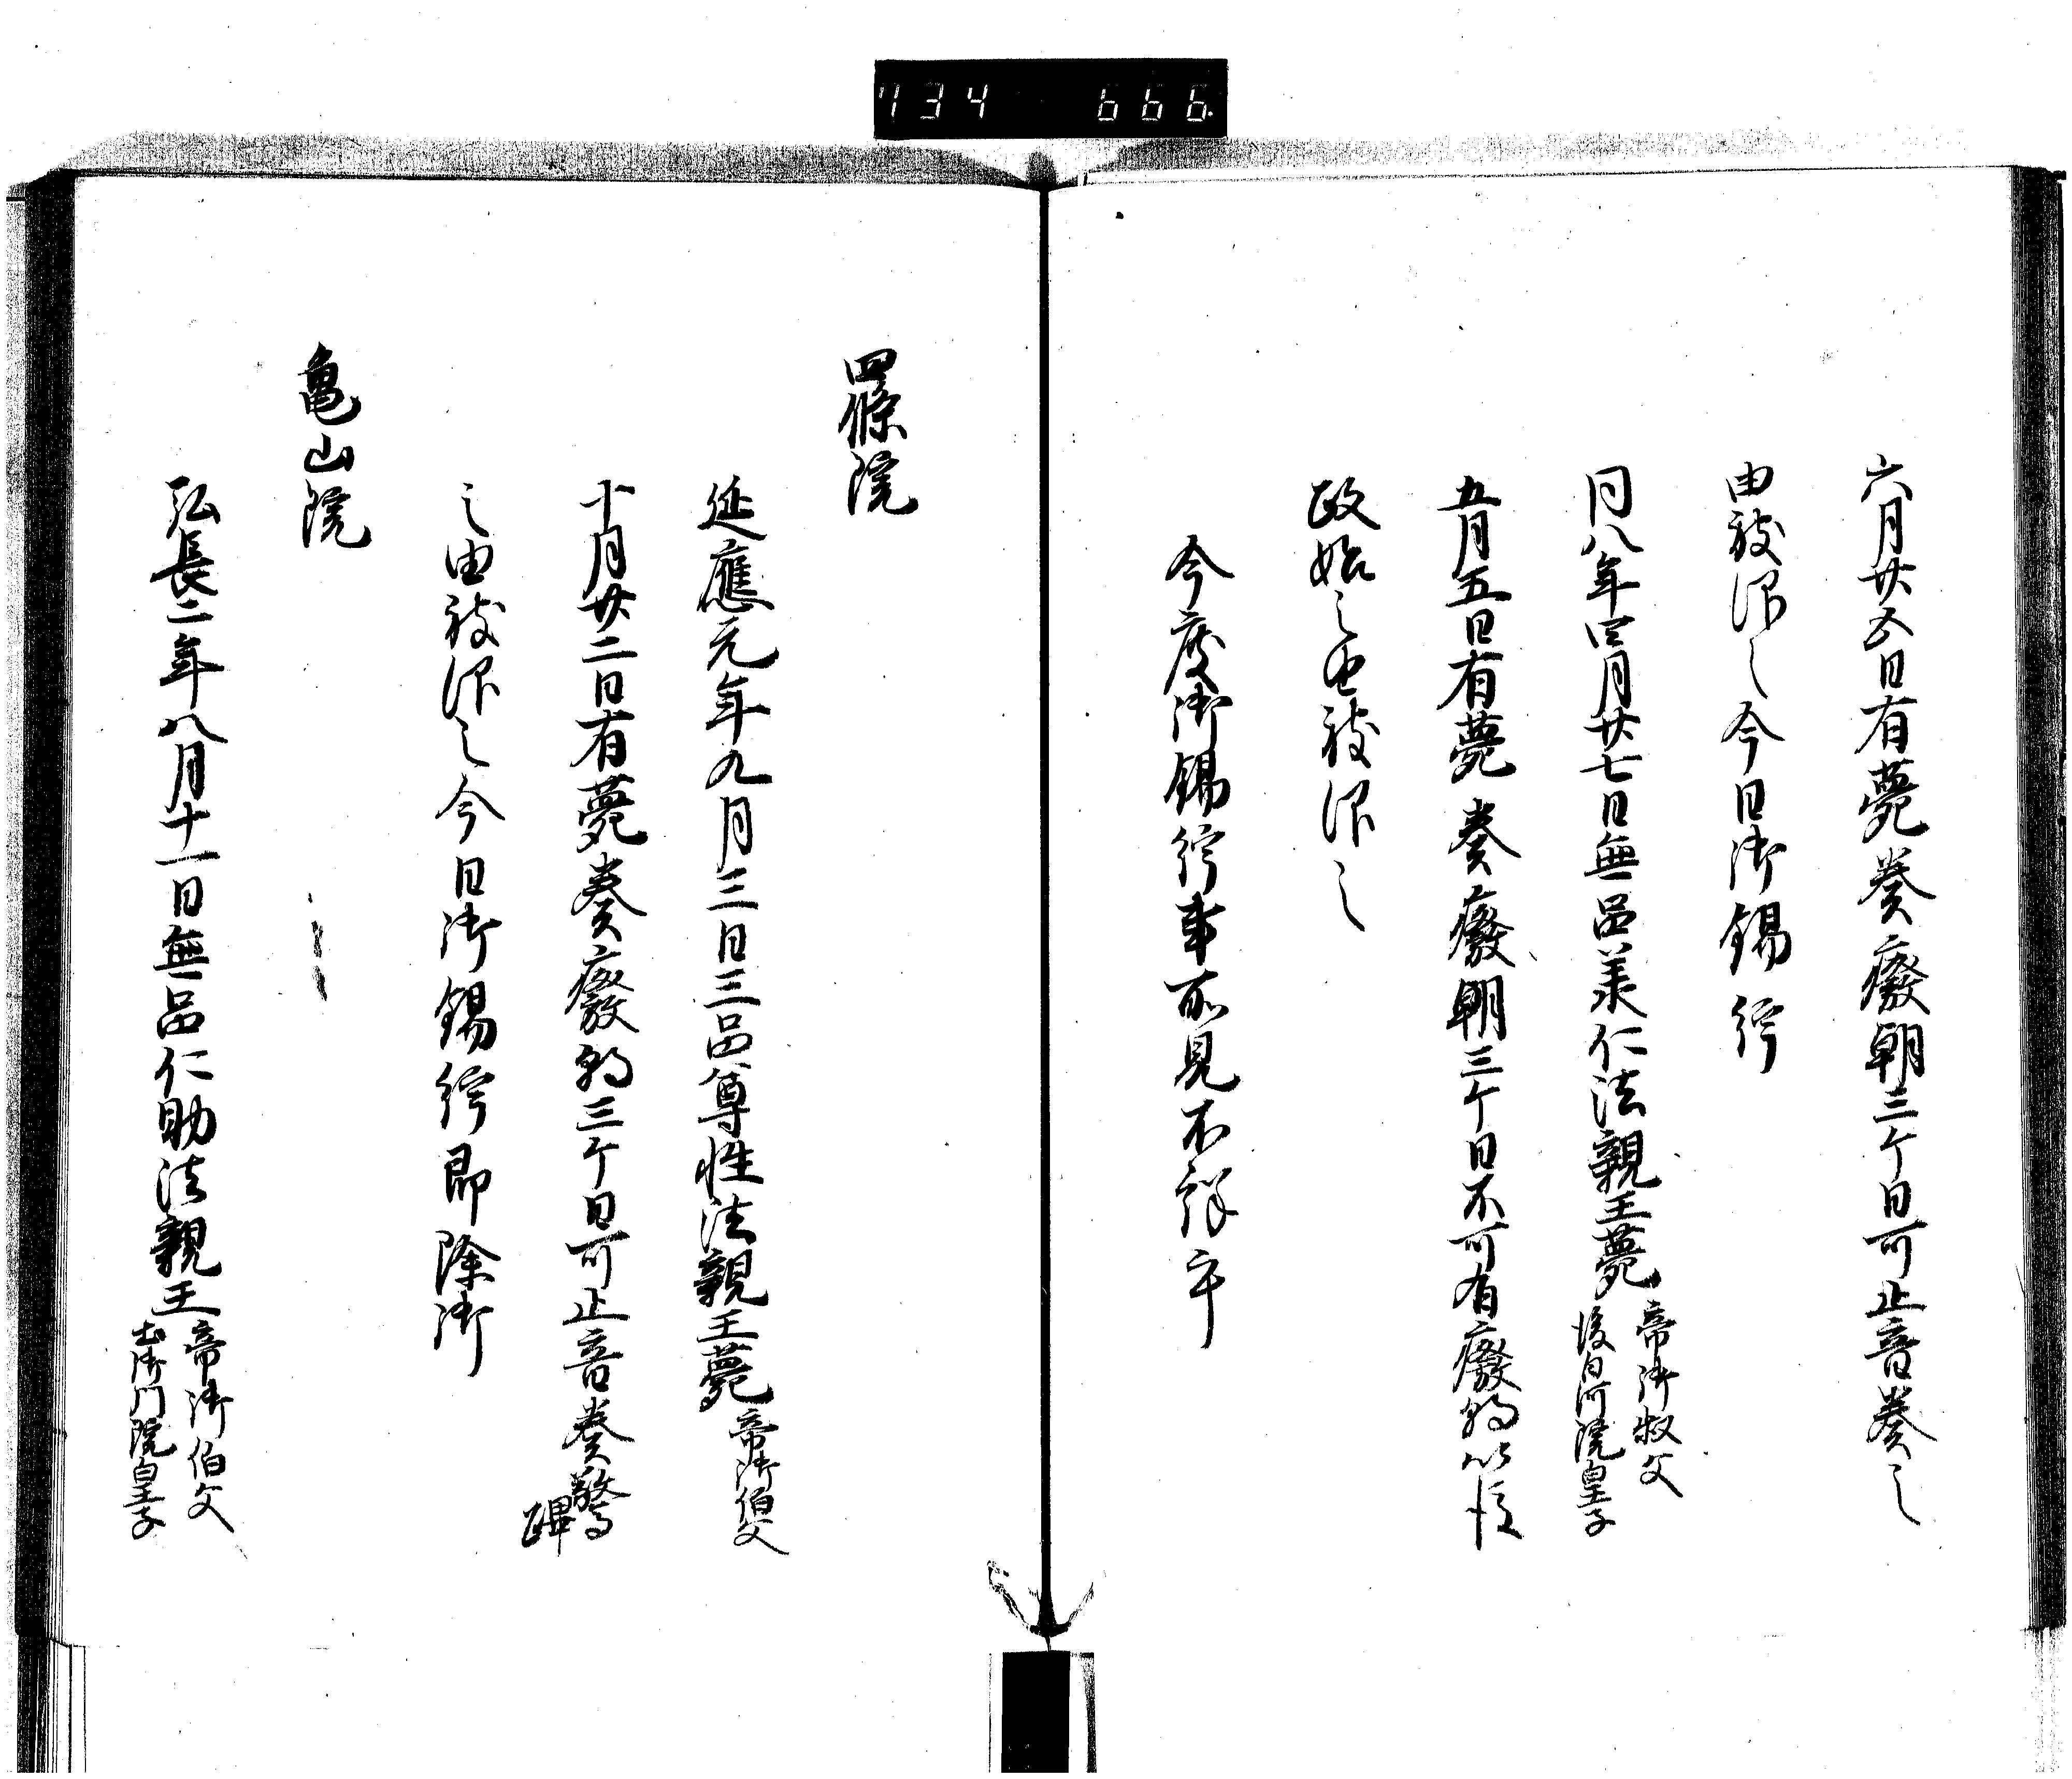 734 666
六月廿五日有薨奏廢朝三ケ日可止音奏之
由被仰之今日御錫紵
同八年四月廿七日無品義仁法親王薨 帝御叔父
後白河院皇子
五月五日有薨奏廢朝三ケ日不可有廢朝以後
政始之由被仰之
今度御錫紵事所見不詳乎
四條院
延應元年九月三日三品尊性法親王薨 帝御伯父
十月廿二日有薨奏廢朝三ケ日可止音奏警
蹕
之由被仰之今日御錫紵即除御
亀山院
弘長二年八月十一日無品仁助法親王 帝御伯父
土御門院皇子